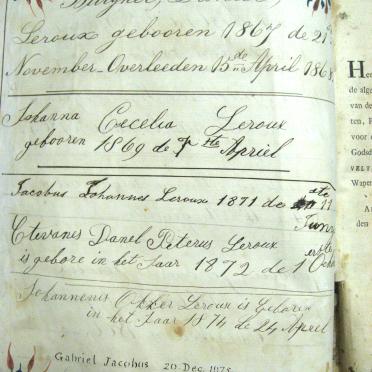 Burgher, Daniel,
Leroux gebooren 1867 de 21
November Overleeden 15de April 186
Johanna Cecelia Leroux
gebooren 1869 de 7 ste Apriel
Jacobus Johannes Leroux 1871 de 11 ste
Junn
Ctevanes Danel Peterus Leroux
is gebore in het Jaar 1872 de 1 erste
Octo
Johannenis Okker Leroux is Geboren
in het Jaar 1874 de 24 April
Gabriel Jacobus 20 Dec. 1875
de alge
van de
ten,
voor
Godsd
VELT
Wapen
den